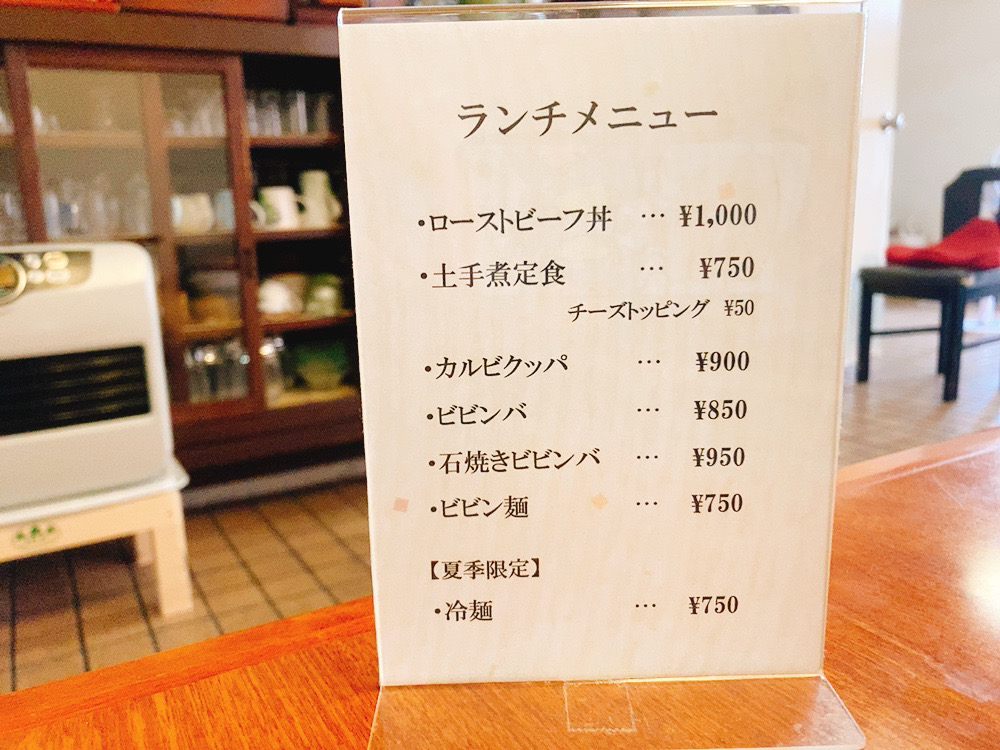 ランチメニュー
・ローストビーフ丼 … ¥1,000
・土手煮定食 … ¥750
チーズトッピング ¥50
・カルビクッパ … ¥900
・ビビンバ … ¥850
・石焼きビビンバ … ¥950
・ビビン麺 … ¥750
【夏季限定】
・冷麺 … ¥750